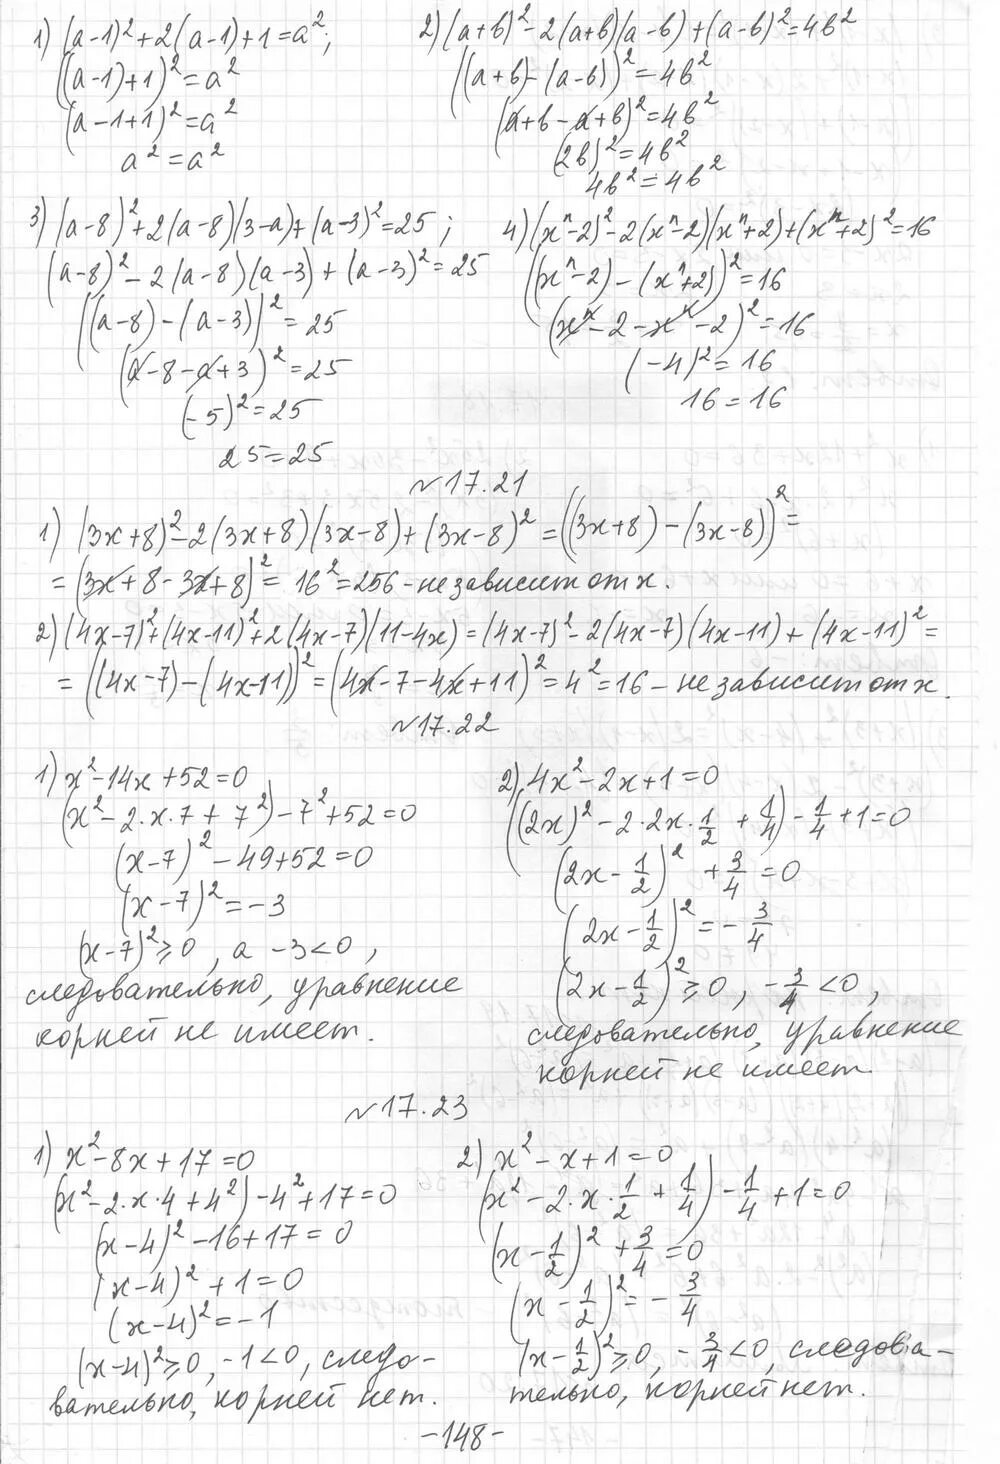 1) (a-1)²+2(a-1)+1=a²;
((a-1)+1)²=a²
(a-1+1)²=a²
a²=a²
2) (a+b)²-2(a+b)(a-b)+(a-b)²=4b²
((a+b)-(a-b))²=4b²
(a+b-a+b)²=4b²
(2b)²=4b²
4b²=4b²
3) (a-8)²+2(a-8)(3-a)+(a-3)²=25;
(a-8)²-2(a-8)(a-3)+(a-3)²=25
((a-8)-(a-3))²=25
(a-8-a+3)²=25
(-5)²=25
25=25
4) (xⁿ-2)²-2(xⁿ-2)(xⁿ+2)+(xⁿ+2)²=16
((xⁿ-2)-(xⁿ+2))²=16
(xⁿ-2-xⁿ-2)²=16
(-4)²=16
16=16
№17.21
1) (3x+8)²-2(3x+8)(3x-8)+(3x-8)²=((3x+8)-(3x-8))²=
=(3x+8-3x+8)²=16²=256-не зависит от x.
2) (4x-7)²+(4x-11)²+2(4x-7)(11-4x)=(4x-7)²-2(4x-7)(4x-11)+(4x-11)²=
=((4x-7)-(4x-11))²=(4x-7-4x+11)²=4²=16-не зависит от x.
№17.22
1) x²-14x+52=0
(x²-2·x·7+7²)-7²+52=0
(x-7)²-49+52=0
(x-7)²=-3
(x-7)²≥0, а -3<0,
следовательно, уравнение
корней не имеет.
2) 4x²-2x+1=0
((2x)²-2·2x·1/2+1/4)-1/4+1=0
(2x-1/2)²+3/4=0
(2x-1/2)²=-3/4
(2x-1/2)²≥0, -3/4<0,
следовательно, уравнение
корней не имеет.
№17.23
1) x²-8x+17=0
(x²-2·x·4+4²)-4²+17=0
(x-4)²-16+17=0
(x-4)²+1=0
(x-4)²=-1
(x-4)²≥0, -1<0, следо-
вательно, корней нет.
2) x²-x+1=0
(x²-2·x·1/2+1/4)-1/4+1=0
(x-1/2)²+3/4=0
(x-1/2)²=-3/4
(x-1/2)²≥0, -3/4<0, следова-
тельно, корней нет.
-148-